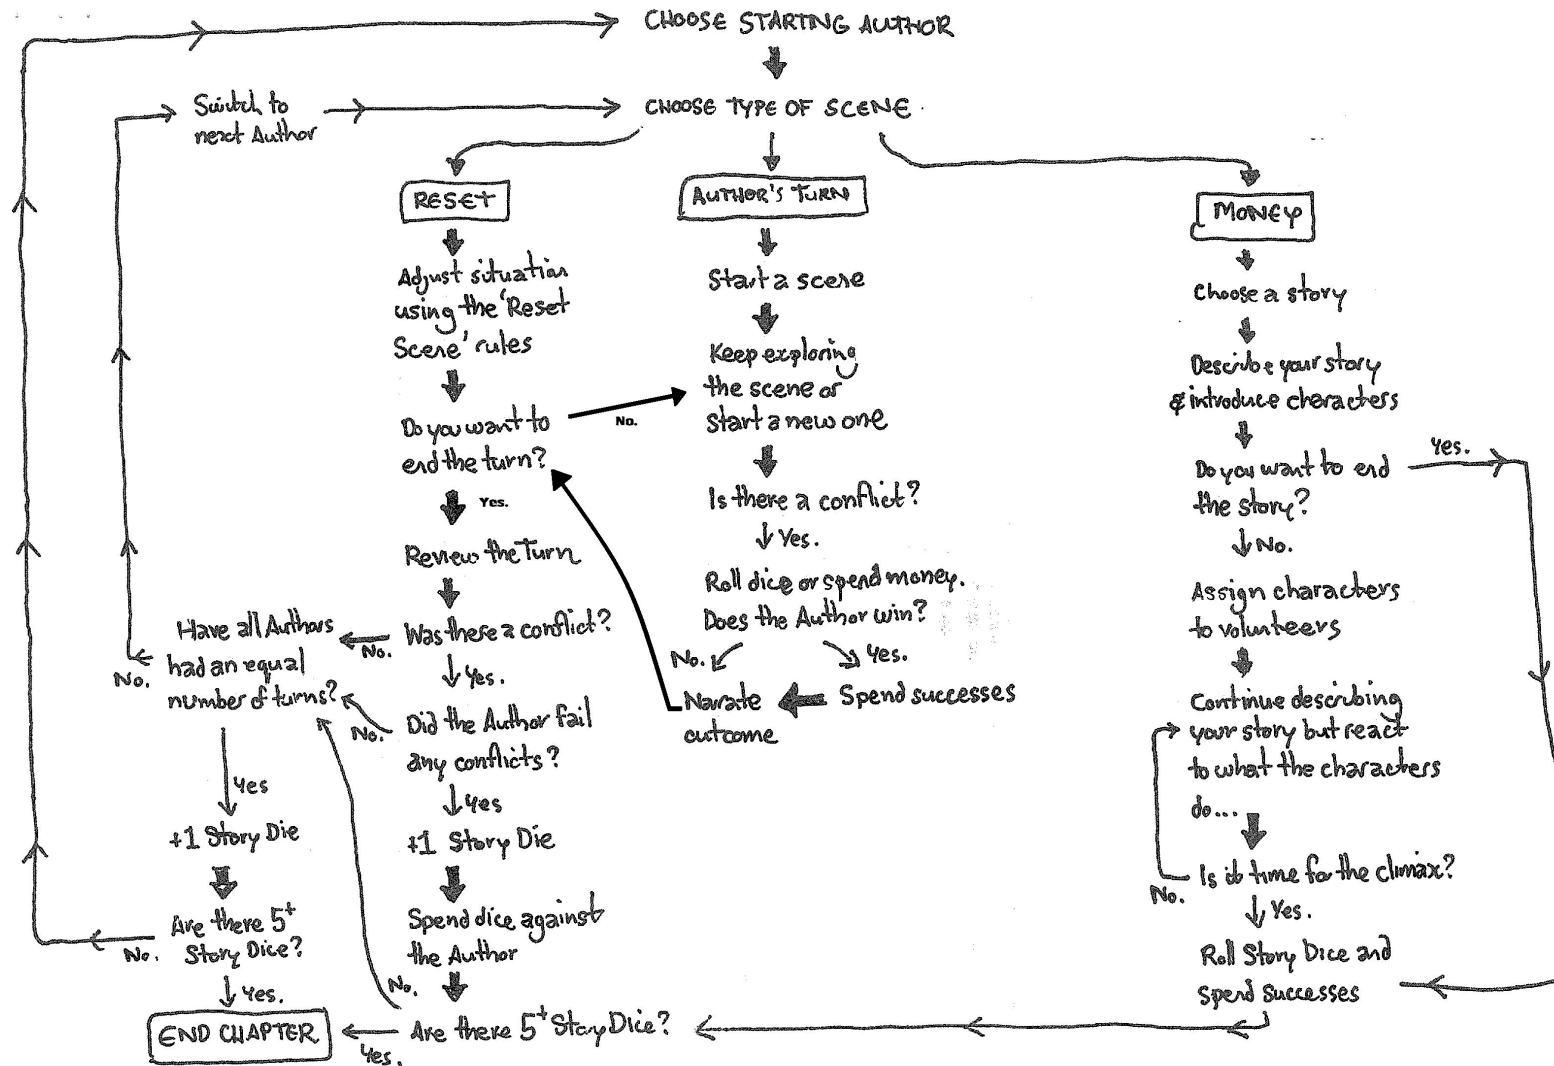 CHOOSE STARTING AUTHOR
Switch to
next Author
CHOOSE TYPE OF SCENE.
RESET
Adjust situation
using the 'Reset
Scene' rules
Do you want to
end the turn?
No.
Yes.
Review the Turn
Was there a conflict?
No.
Yes.
Did the Author fail
any conflicts?
No.
Yes
+1 Story Die
Spend dice against
the Author
No.
Are there 5+ Story Dice?
Yes.
Have all Authors
had an equal
number of turns?
No.
Yes
+1 Story Die
Are there 5+
Story Dice?
No.
Yes.
END CHAPTER
AUTHOR'S TURN
Start a scene
Keep exploring
the scene or
start a new one
Is there a conflict?
Yes.
Roll dice or spend money.
Does the Author win?
No.
Yes.
Narate
outcome
Spend successes
MONEY
Choose a story
Describe your story
& introduce characters
Do you want to end
the story?
Yes.
No.
Assign characters
to volunteers
Continue describing
your story but react
to what the characters
do...
Is it time for the climax?
No.
Yes.
Roll Story Dice and
spend successes